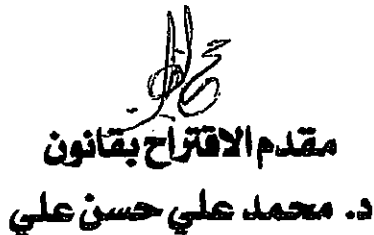 مقدم الاقتراح بقانون
د. محمد علي حسن علي